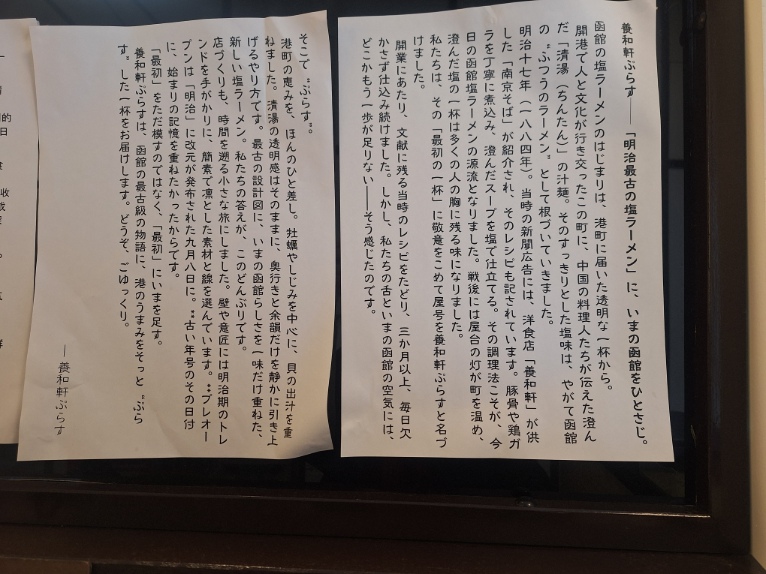 養和軒ぷらす――「明治最古の塩ラーメン」に、いまの函館をひとさじ。
函館の塩ラーメンのはじまりは、港町に届いた透明な一杯から。
開港で人と文化が行き交ったこの町に、中国の料理人たちが伝えた澄ん
だ「清湯（ちんたん）」の汁麺。そのすっきりとした塩味は、やがて函館
の“ふつうのラーメン”として根づいていきました。
明治十七年（一八八四年）。当時の新聞広告には、洋食店「養和軒」が供
した「南京そば」が紹介され、そのレシピも記されています。豚骨や鶏ガ
ラを丁寧に煮込み、澄んだスープを塩で仕立てる。その調理法こそが、今
日の函館塩ラーメンの源流となりました。戦後には屋台の灯が町を温め、
澄んだ塩の一杯は多くの人の胸に残る味になりました。
私たちは、その「最初の一杯」に敬意をこめて屋号を養和軒ぷらすと名づ
けました。
開業にあたり、文献に残る当時のレシピをたどり、三か月以上、毎日欠
かさず仕込み続けました。しかし、私たちの舌といまの函館の空気には、
どこかもう一歩が足りない――そう感じたのです。
そこで“ぷらす”。
港町の恵みを、ほんのひと差し。牡蠣やしじみを中心に、貝の出汁を重
ねました。清湯の透明感はそのままに、奥行きと余韻だけを静かに引き上
げるやり方です。最古の設計図に、いまの函館らしさを一味だけ重ねた、
新しい塩ラーメン。私たちの答えが、このどんぶりです。
店づくりも、時間を遡る小さな旅にしました。壁や意匠には明治期のトレ
ンドを手がかりに、簡素で凛とした素材と線を選んでいます。プレオー
プンは「明治」に改元が発布された九月八日に。古い年号のその日付
に、始まりの記憶を重ねたかったからです。
「最初」をただ模すのではなく、「最初」にいまを足す。
養和軒ぷらすは、函館の最古級の物語に、港のうまみをそっと“ぷら
す”した一杯をお届けします。どうぞ、ごゆっくり。
― 養和軒ぷらす